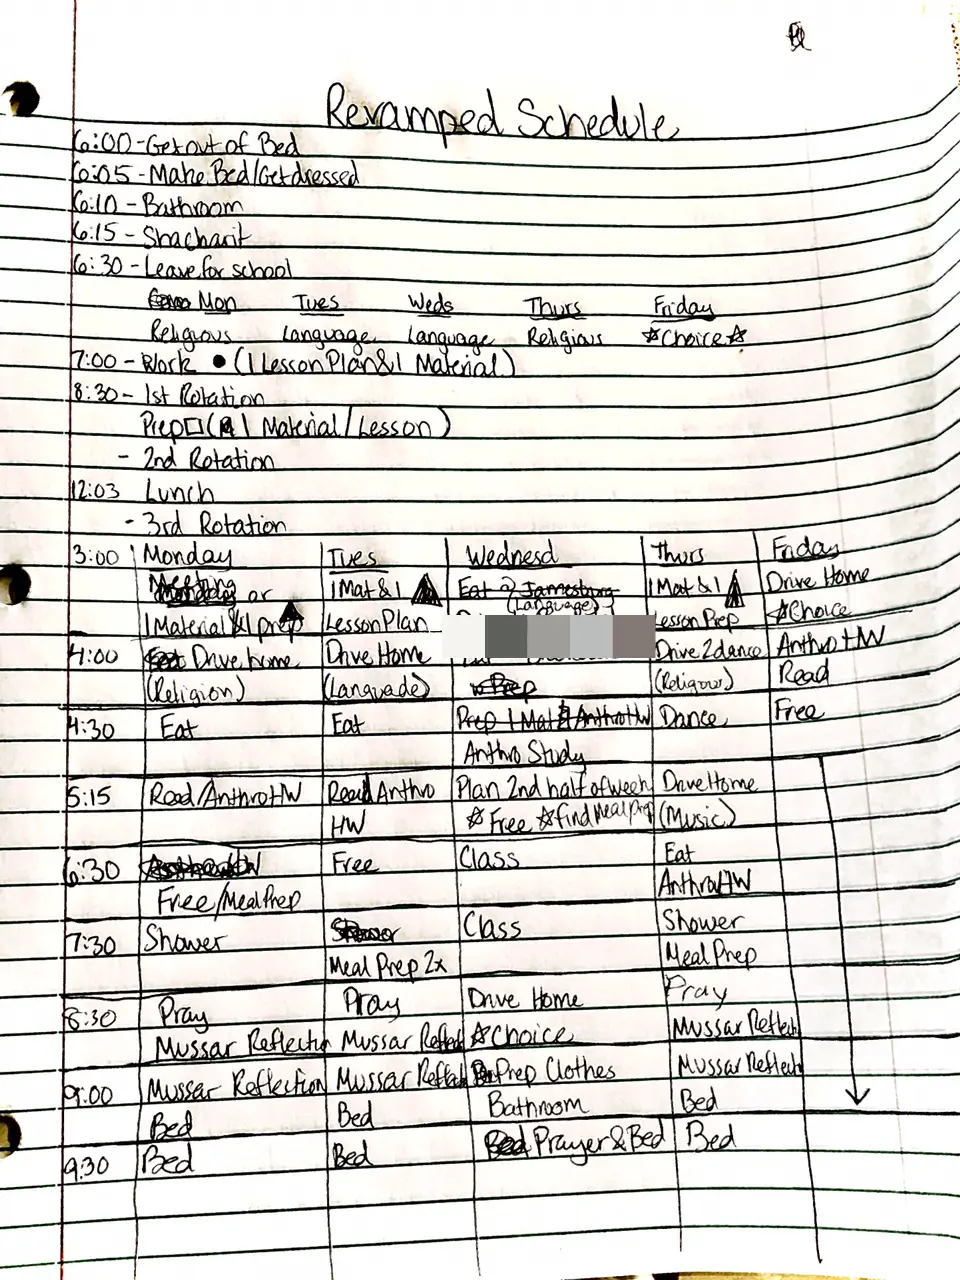 Revamped Schedule
6:00 - Get out of Bed
6:05 - Make Bed/Get dressed
6:10 - Bathroom
6:15 - Shacharit
6:30 - Leave for school
Mon Tues Weds Thurs Friday
Religious Language Language Religious ☆Choice☆
7:00 - Work • (1 Lesson Plan & 1 Material)
8:30 - 1st Rotation
Prep □ (1 Material/Lesson)
- 2nd Rotation
12:03 Lunch
- 3rd Rotation
3:00 Monday Tues Wednesd Thurs Friday
Meeting or 1 Mat & 1 Eat @ Jamesburg 1 Mat & 1 Drive Home
(Language)
1 Material & 1 prep Lesson Plan Lesson Prep ☆Choice
4:00 Drive home Drive Home Drive 2 dance Anthro HW
(Religion) (Languade) Prep (Religous) Read
4:30 Eat Eat Prep 1 Mat & Anthro HW Dance Free
Anthro Study
5:15 Read/Anthro HW Read Anthro Plan 2nd half of week Drive Home
HW ☆Free ☆find Meal Prep (Music)
6:30 Anthro HW Free Class Eat
Free/Meal Prep Anthro HW
7:30 Shower Shower Class Shower
Meal Prep 2x Meal Prep
8:30 Pray Pray Drive Home Pray
Mussar Reflectin Mussar Reflect ☆Choice Mussar Reflectn
9:00 Mussar Reflection Mussar Reflectn Prep Clothes Mussar Reflectn
Bed Bed Bathroom Bed
9:30 Bed Bed Bed Prayer & Bed Bed